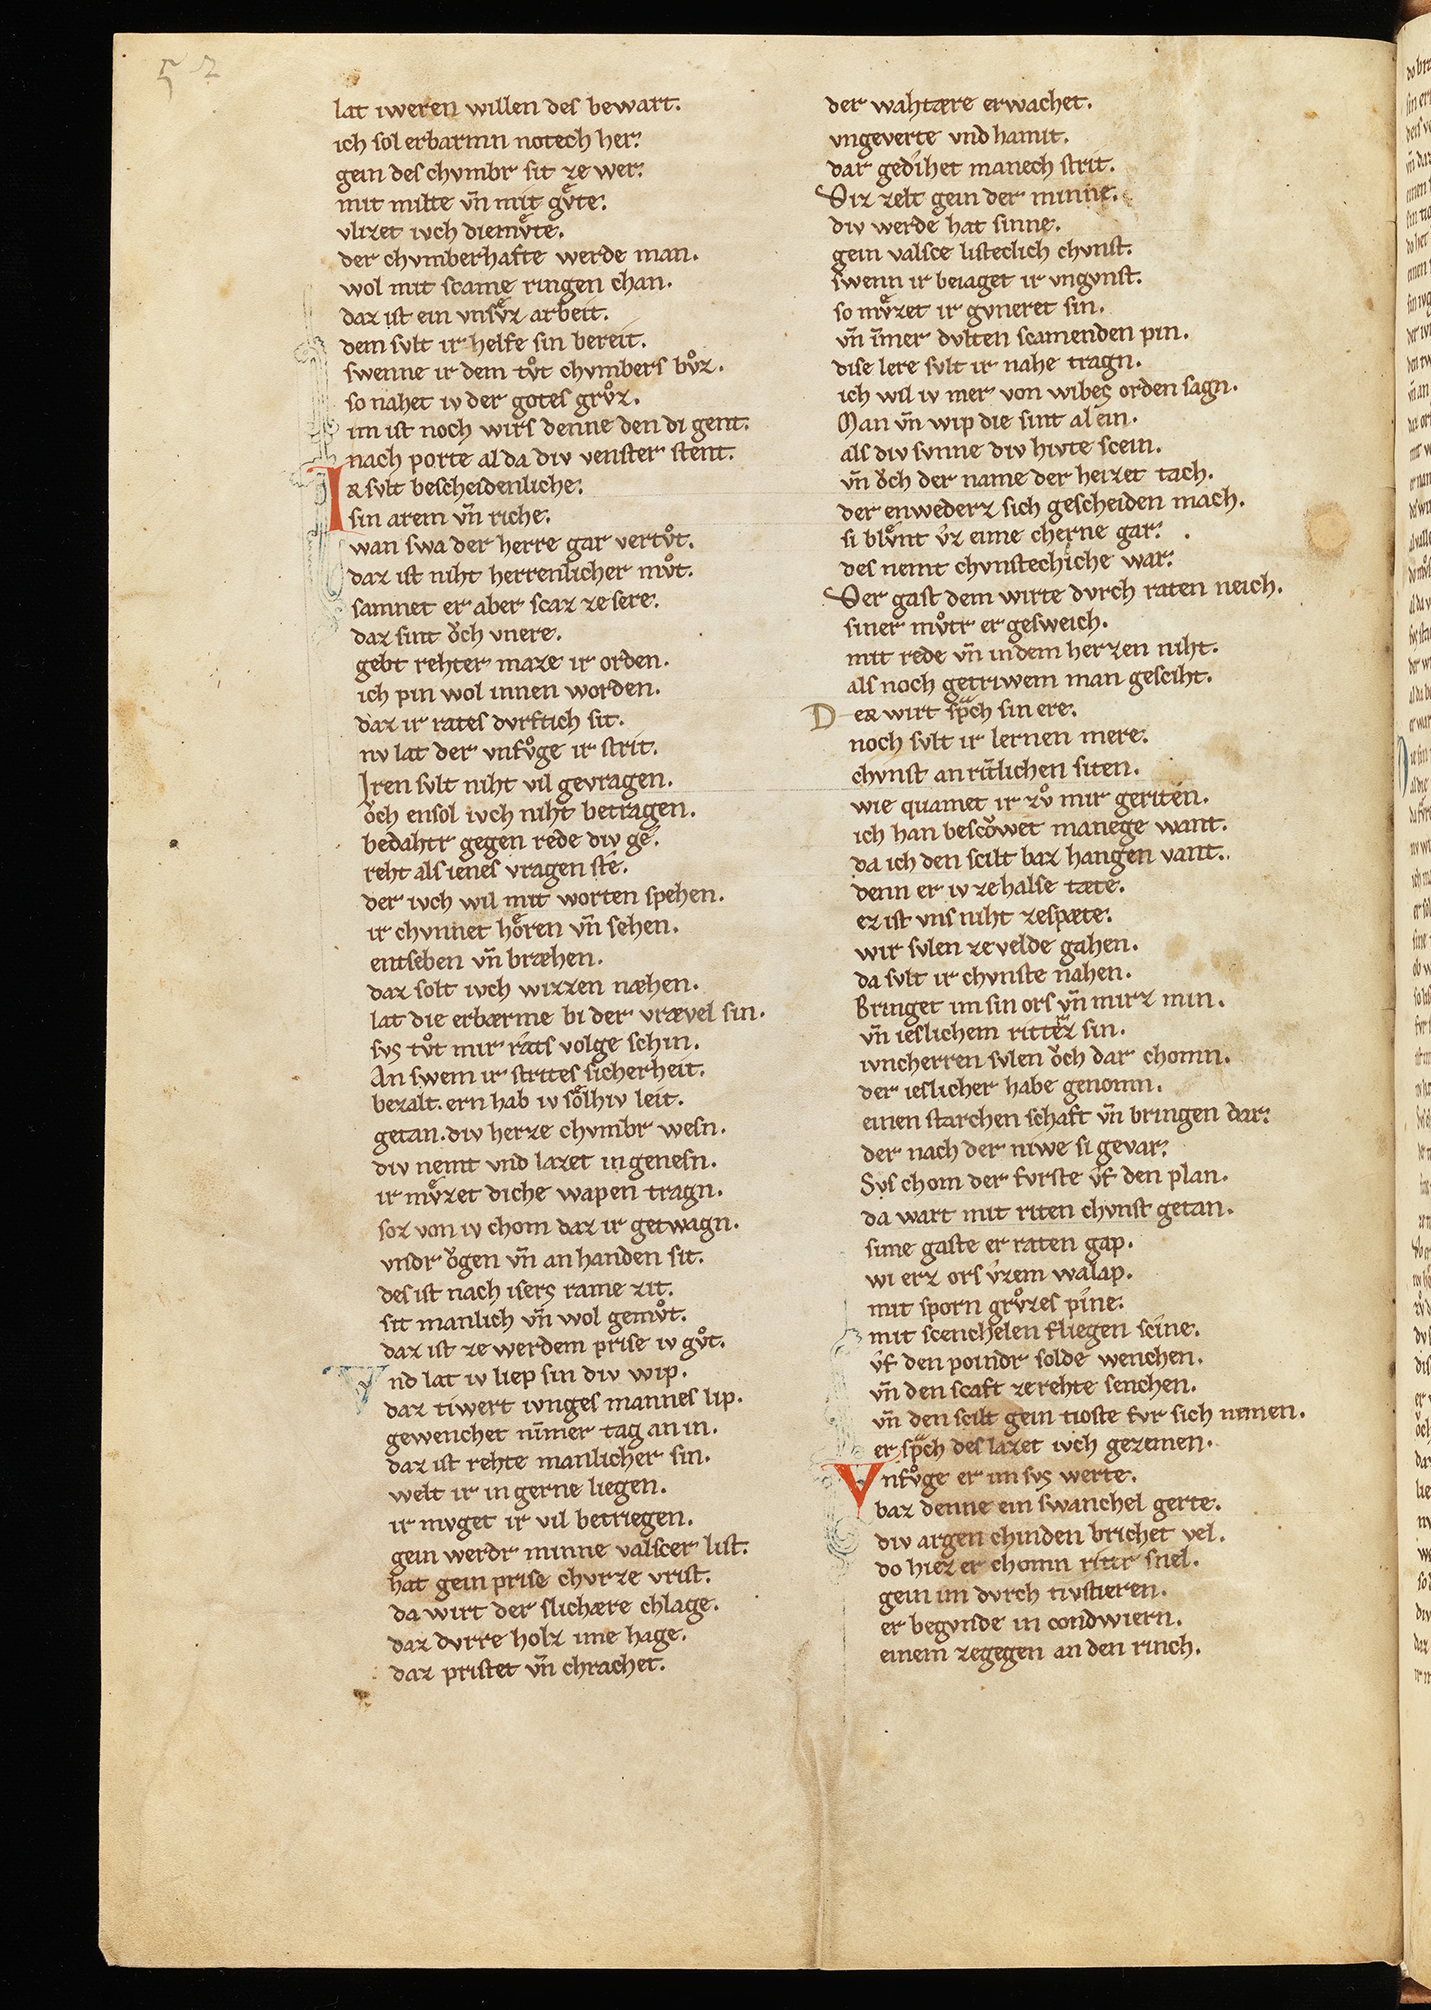 52
lat iweren willen des bewart.
ich sol erbarmn notech her.
gein des chvmbr sit ze wer.
mit milte vn̄ mit gv̊te.
vlizet ivch diemv̊te.
der chvmberhafte werde man.
wol mit scame ringen chan.
daz ist ein vnsv̊z arbeit.
dem svlt ir helfe sin bereit.
swenne ir dem tv̊t chvmbers bv̊z.
so nahet iv der gotes grv̊z.
im ist noch wirs denne den di gent.
nach porte al da div venster stent.
Ir svlt bescheidenliche.
sin arem vn̄ riche.
wan swa der herre gar vertv̊t.
daz ist niht herrenlicher mv̊t.
samnet er aber scaz ze sere.
daz sint ǒch vnere.
gebt rehter maze ir orden.
ich pin wol innen worden.
daz ir rates dvrftich sit.
nv lat der vnfv̊ge ir strit.
Iren svlt niht vil gevragen.
ǒch ensol ivch niht betragen.
bedahtr gegen rede div ge.
reht als ienes vragen ste.
der ivch wil mit worten spehen.
ir chvnnet hŏren vn̄ sehen.
entseben vn̄ bræhen.
daz solt ivch wizzen næhen.
lat die erbærme bi der vrævel sin.
svs tv̊t mir rats volge schin.
An swem ir strites sicherheit.
bezalt. ern hab iv sŏlhiv leit.
getan. div herze chvmbr wesn.
div nemt vnd lazet in genesn.
ir mv̊zet diche wapen tragn.
soz von iv chom daz ir getwagn.
vndr ǒgen vn̄ an handen sit.
des ist nach isers rame zit.
sit manlich vn̄ wol gemv̊t.
daz ist ze werdem prise iv gv̊t.
Vnd lat iv liep sin div wip.
daz tiwert ivnges mannes lip.
gewenchet nim̄er tag an in.
daz ist rehte manlicher sin.
welt ir in gerne liegen.
ir mvget ir vil betriegen.
gein werdr minne valscer list.
hat gein prise chvrze vrist.
da wirt der slichære chlage.
daz dvrre holz ime hage.
daz pristet vn̄ chrachet.
der wahtære erwachet.
vngeverte vnd hamit.
dar gedihet manech strit.
Diz zelt gein der minne.
div werde hat sinne.
gein valsce listeclich chvnst.
swenn ir beiaget ir vngvnst.
so mv̊zet ir gvneret sin.
vn̄ im̄er dvlten scamenden pin.
dise lere svlt ir nahe tragn.
ich wil iv mer von wibes orden sagn.
Man vn̄ wip die sint al ein.
als div svnne div hivte scein.
vn̄ ǒch der name der heizet tach.
der enwederz sich gescheiden mach.
si blv̊nt vz eime cherne gar.
des nemt chvnstechiche war.
Der gast dem wirte dvrch raten neich.
siner mv̊tr er gesweich.
mit rede vn̄ in dem herzen niht.
als noch getriwem man gesciht.
Der wirt spͣch sin ere.
noch svlt ir lernen mere.
chvnst an rit̄lichen siten.
wie quamet ir zv̊ mir geriten.
ich han bescǒwet manege want.
da ich den scilt baz hangen vant.
denn er iv ze halse tæte.
ez ist vns niht ze spæte.
wir svlen ze velde gahen.
da svlt ir chvnste nahen.
Bringet im sin ors vn̄ mirz min.
vn̄ ieslichem ritterz sin.
ivncherren svlen ǒch dar chomn.
der ieslicher habe genomn.
einen starchen schaft vn̄ bringen dar.
der nach der niwe si gevar.
Svs chom der fvrste vf den plan.
da wart mit riten chvnst getan.
sime gaste er raten gap.
wi erz ors vzem walap.
mit sporn grv̊zes pine.
mit scenchelen fliegen scine.
vf den poindr solde wenchen.
vn̄ den scaft ze rehte senchen.
vn̄ den scilt gein tioste fvr sich nemen.
er spͣch des lazet ivch gezemen.
Vnfv̊ge er im svs werte.
baz denne ein swanchel gerte.
div argen chinden brichet vel.
do hiez er chomn rittr snel.
gein im dvrch tivstieren.
er begvnde in condwiern.
einem zegegen an den rinch.